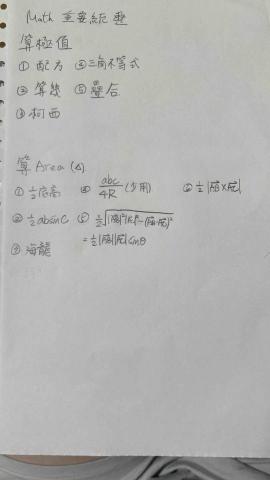 Math 重要統整
算極值
① 配方 ④ 三角不等式
② 算幾 ⑤ 疊合
③ 柯西
算 Area (△)
① ½底高 ④ abc/4R (少用) ⑥ ½|AB×AC|
② ½absinC ⑤ ½√|AB|²|AC|²-(AB·AC)²
③ 海龍 =½|AB||AC|sinθ